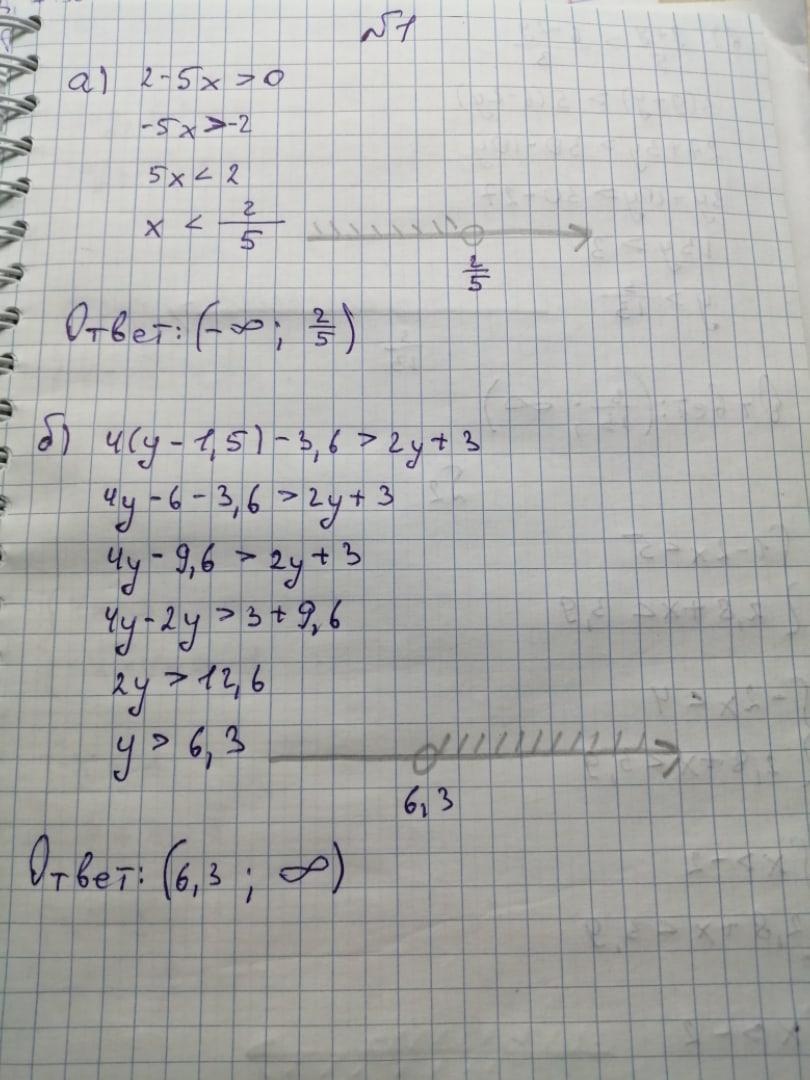 №1
а) 2-5x > 0
-5x > -2
5x < 2
x < 2/5
2/5
Ответ: (-∞; 2/5)
б) 4(y - 1,5) - 3,6 > 2y + 3
4y - 6 - 3,6 > 2y + 3
4y - 9,6 > 2y + 3
4y - 2y > 3 + 9,6
2y > 12,6
y > 6,3
6,3
Ответ: (6,3 ; ∞)